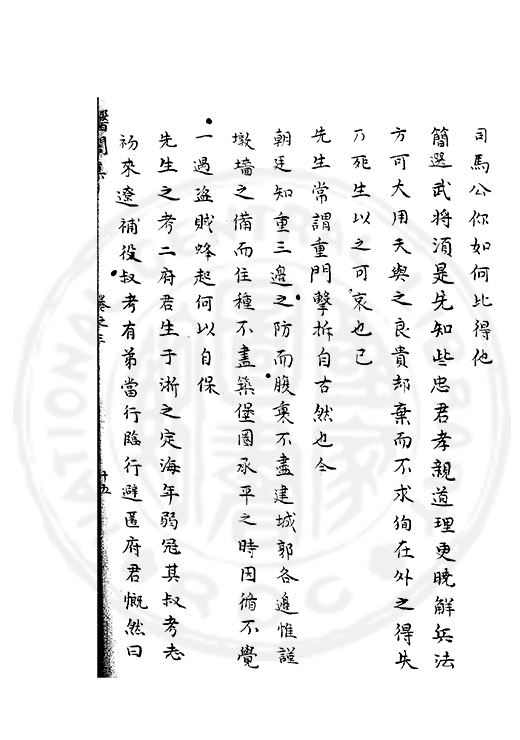 司馬公你如何比得他
簡選武將須是先知些忠君孝親道理更曉解兵法
方可大用天與之良貴却棄而不求徇在外之得失
乃死生以之可哀也已
先生常謂重門擊柝自古然也今
朝廷知重三邊之防而腹裏不盡建城郭各邊惟謹
墩墻之備而住種不盡築堡圍承平之時因循不覺
一過盗賊蜂起何以自保
先生之考二府君生于浙之定海年弱冠其叔考志
初來遼補役叔考有弟當行臨行避匿府君慨然曰
醫閭集
卷之三
十五